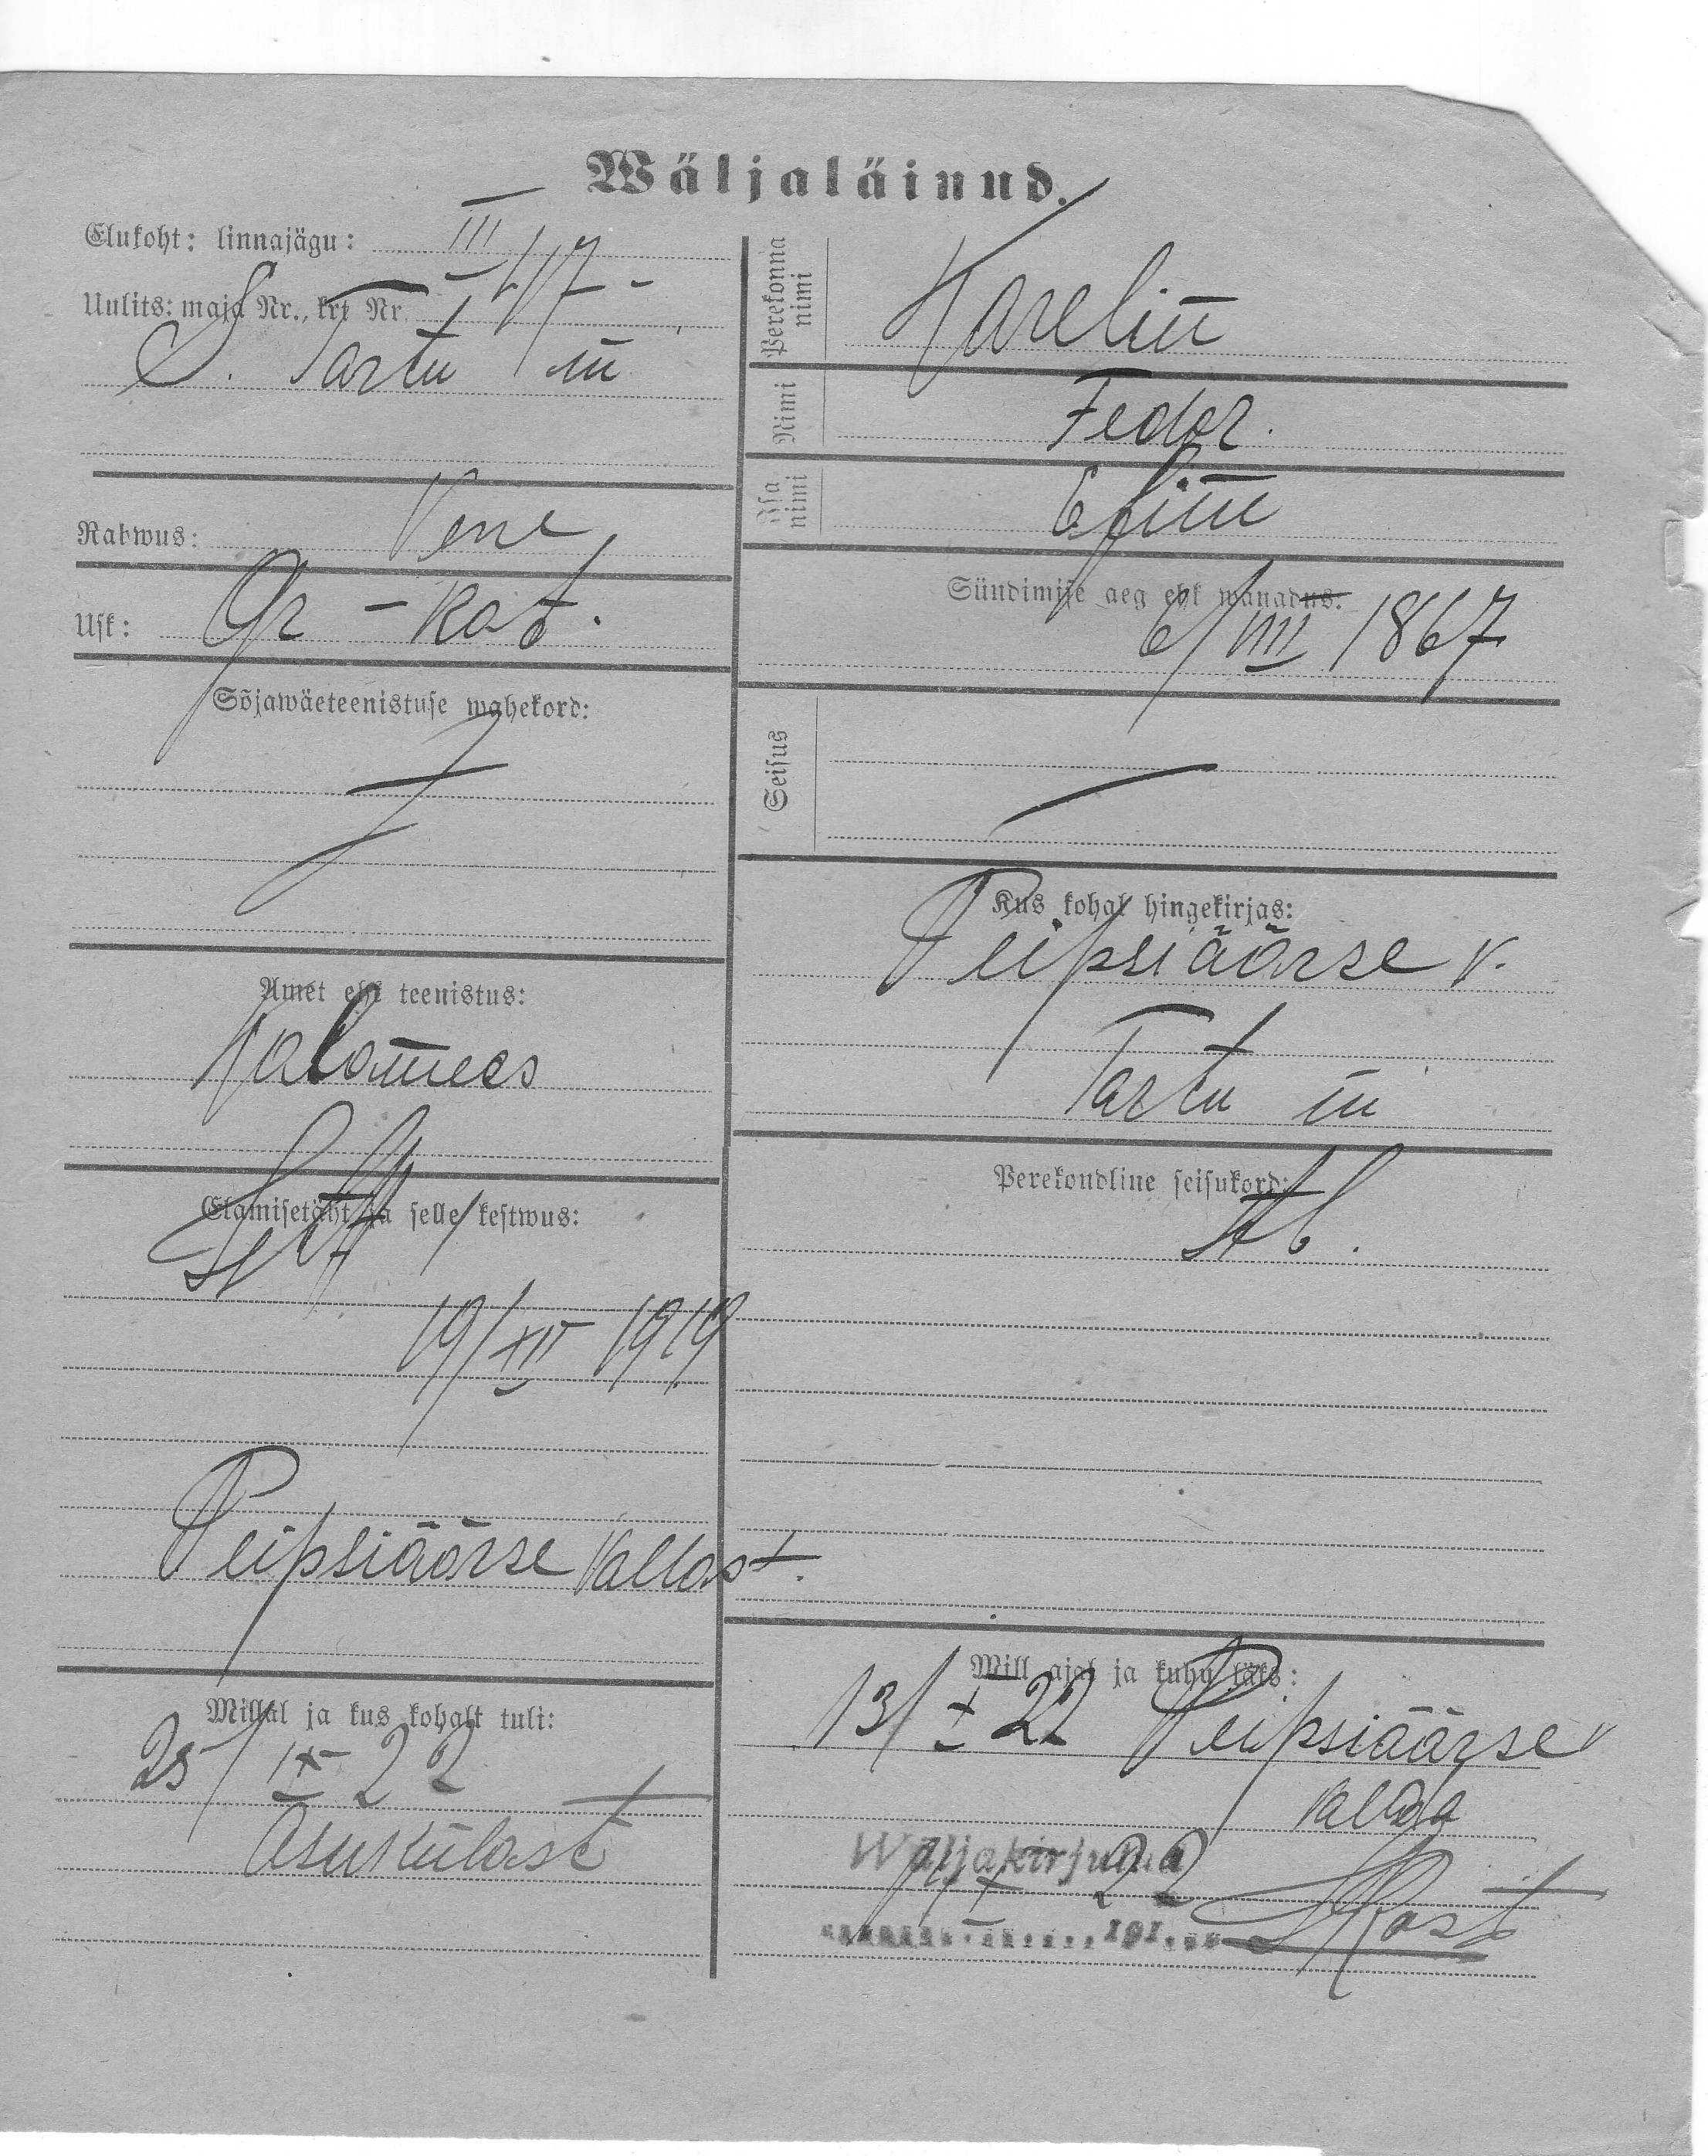 Wäljaläinud.
Elukoht: linnajägu: III
Uulits: maja Nr., krt Nr. 117 -
S. Tartu m
Rahwus: Vene
Usk: Gr - kat.
Sõjawäeteenistuse wahekord:
Amet ehk teenistus:
Kalamees
Elamisetäht ja selle kestwus:
19/XII 1919
Peipsiäärse vallast.
Millal ja kus kohalt tuli:
25/IX 22
Asukülast
Perekonna nimi Karelin
Nimi Fedor.
Isa nimi Efim
Sündimise aeg ehk wanadus.
6/VIII 1867
Seisus —
Kus kohal hingekirjas:
Peipsiäärse v.
Tartu m
Perekondline seisukord:
Ab.
Mill ajal ja kuhu läks:
13/X 22 Peipsiäärse
valda
Wäljakirjutud
22
191